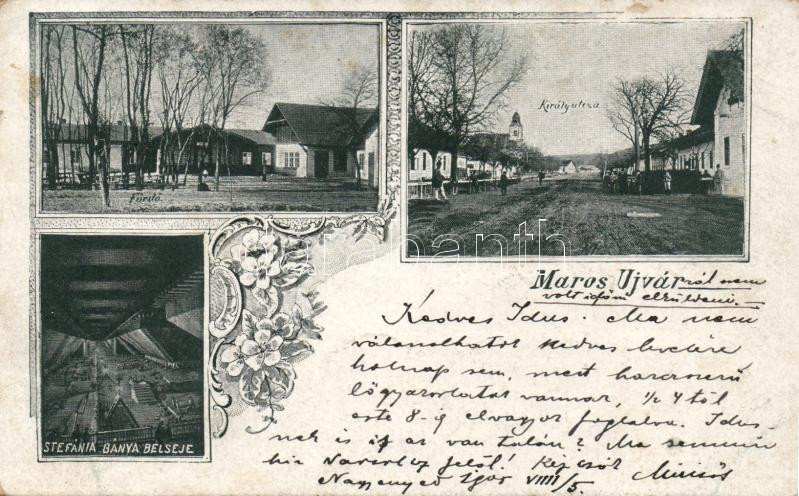 Fürdő
Király utcza
STEFÁNIA BÁNYA BELSEJE
Maros Ujvárról nem
volt időm elküldeni.
Kedves Idus. Ma nem
válaszolhatok kedves levelére
holnap sem, mert harczszerű
lőgyakorlatok vannak, 1/2 4 től
este 8-ig elvagyok foglalva. Idus-
nak is if az van talán? Ma semmi
hir felől! Kézcsók
Nagyenyed 1905 VIII/5. Miklós
darabanth.com